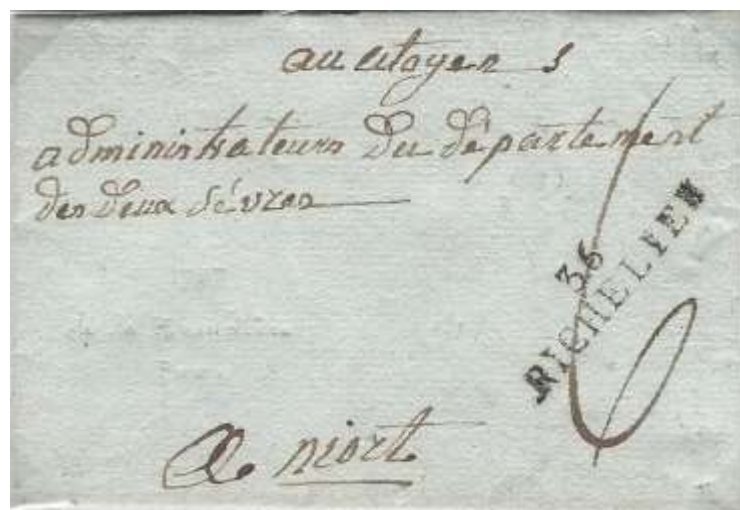 au citoyen s
administrateurs du département
des deux sévres
36
RICHELIEU
6
A niort